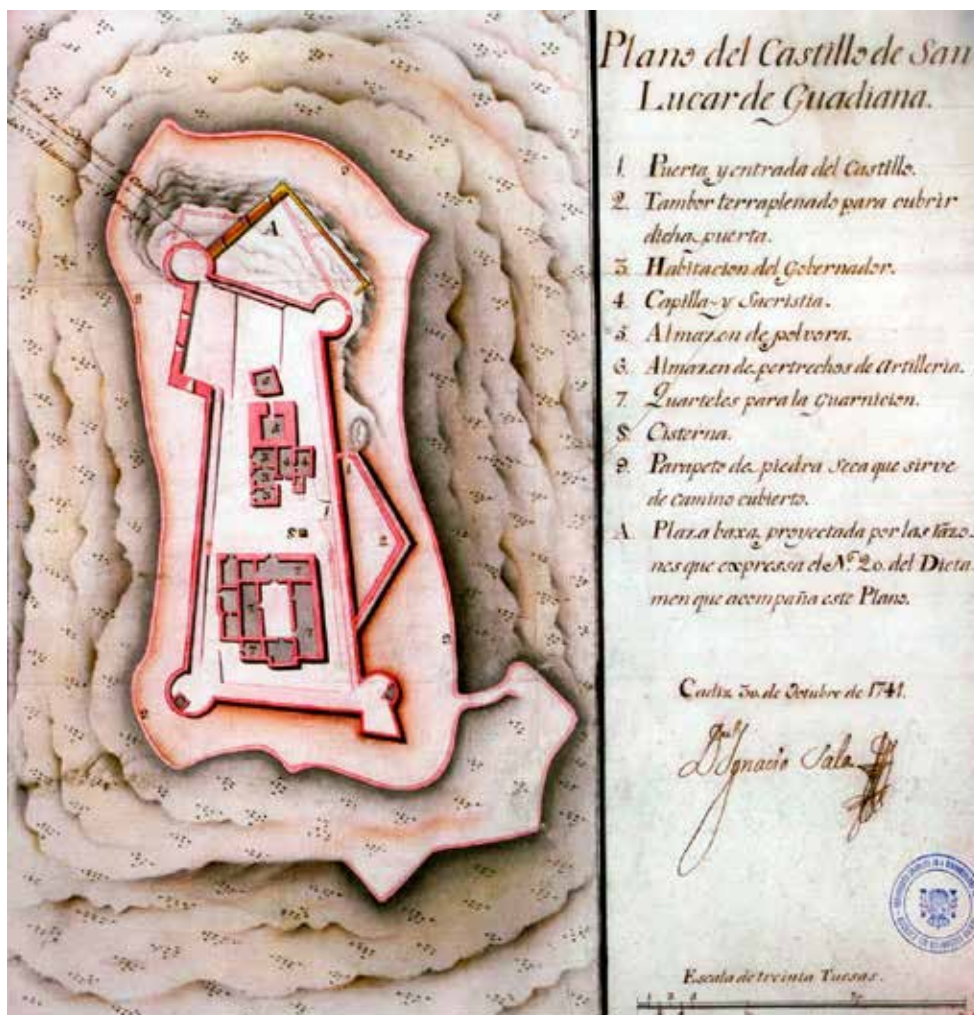 Plano del Castillo de San
Lucar de Guadiana.
1. Puerta y entrada del Castillo.
2. Tambor terraplenado para cubrir
dicha puerta.
3. Habitacion del Gobernador.
4. Capilla y Sacristia.
5. Almazen de polvora.
6. Almazen de pertrechos de Artilleria.
7. Quarteles para la Guarnicion.
8. Cisterna.
9. Parapeto de piedra seca que sirve
de camino cubierto.
A. Plaza baxa, proyectada por las razo-
nes que expressa el N.º 20. del Dicta-
men que acompaña este Plano.
Cadiz 30. de Octubre de 1741.
Dn Ignacio Sala
Escala de treinta Tuesas.
A
1
2
8
9